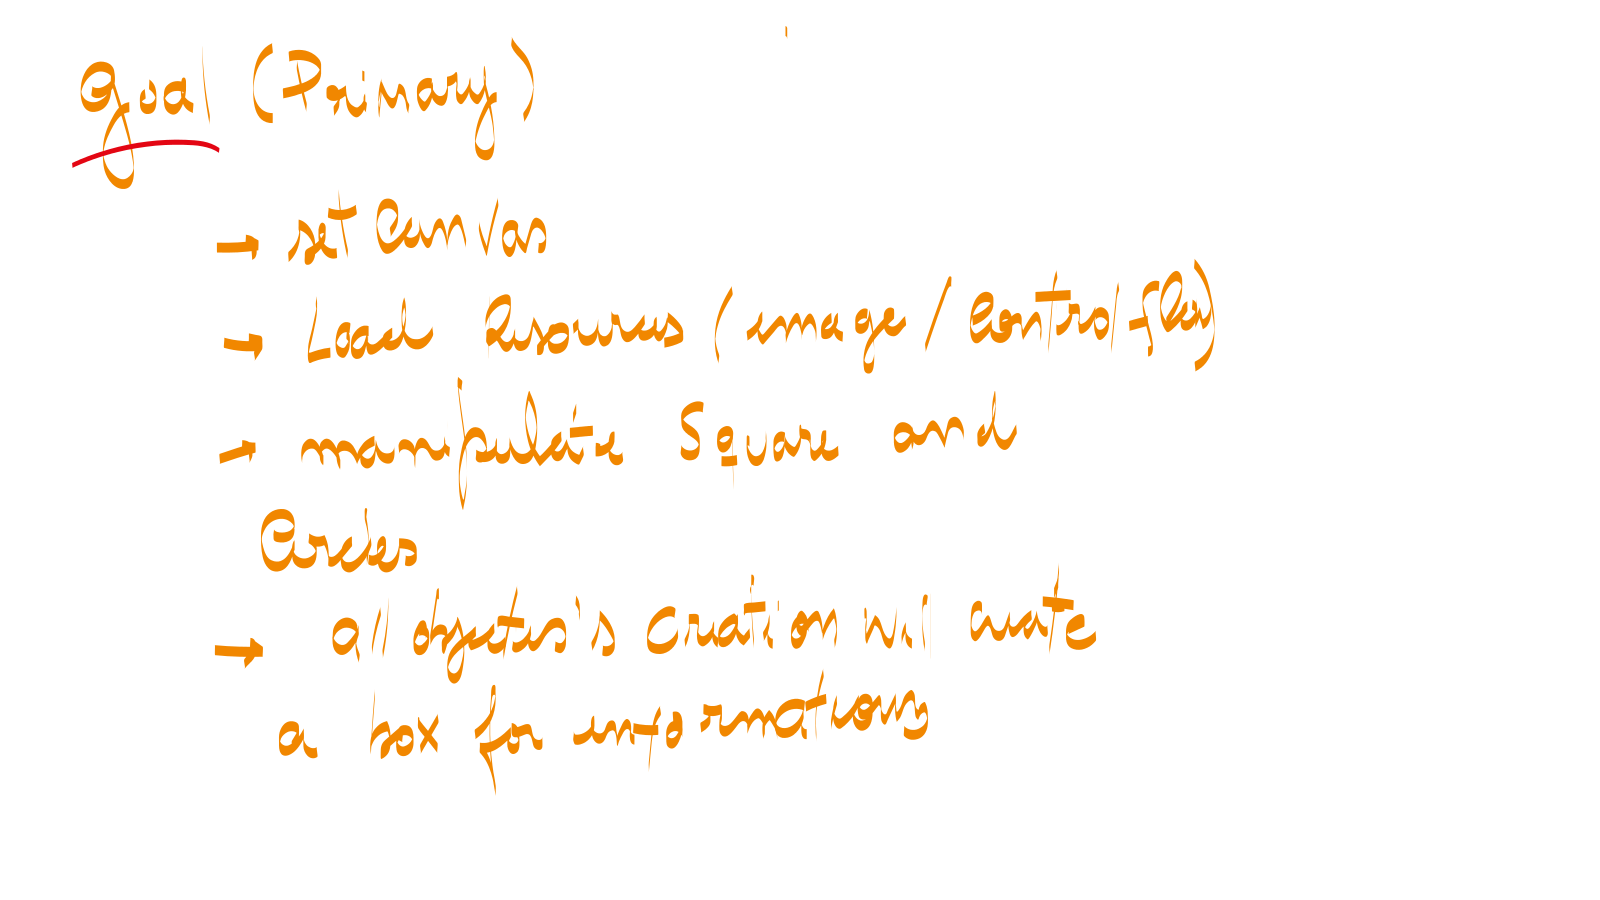 Goal (Primary)
→ set Canvas
→ Load Resources (image / Control flow)
→ manipulate Square and
Circles
→ all objectes's creation will create
a box for informations